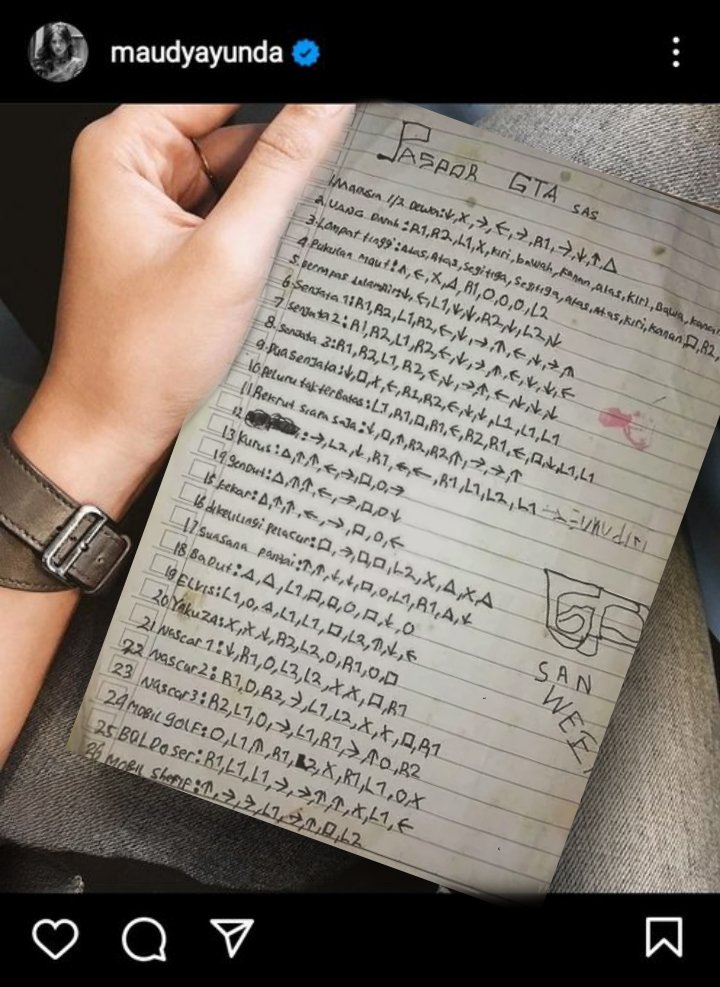 maudyayunda
PASPOR GTA SAS
1. Manusia 1/2 Dewa: ↓, X, →, ←, →, R1, →, ↓, ↑, △
2. UANG Darah: R1, R2, L1, X, kiri, bawah, kanan, atas, kiri, Bawa, kanan
3. Lompat tinggi: Atas, Atas, Segitiga, Segitiga, atas, Atas, kiri, kanan, □, R2,
4. Pukulan maut: ↑, ←, X, △, R1, O, O, O, L2
5. Bernapas dalam air: ↓, ←, L1, ↓, ↓, R2, ↓, L2, ↓
6 Senjata 1: R1, R2, L1, R2, ←, ↓, →, ↑, ←, ↓, →, ↑
7 Senjata 2: R1, R2, L1, R2, ←, ↓, →, ↑, ←, ↓, ↓, ←
8. Senjata 3: R1, R2, L1, R2, ←, ↓, →, ↑, ←, ↓, ↓, ↓
9. Dua Senjata: ↓, □, X, ←, R1, R2, ←, ↓, ↓, L1, L1, L1
10 Peluru tak terbatas: L1, R1, □, R1, ←, R2, R1, ←, □, ↓, L1, L1
11 Rekrut siapa saja: ↓, □, ↑, R2, R2, ↑, →, →, ↑
12 : →, L2, ↓, R1, ←, ←, R1, L1, L2, L1 →
13 kurus: △, ↑, ↑, ←, →, □, O, →
14 Gendut: △, ↑, ↑, ←, →, □, O, ↓
15 kekar: △, ↑, ↑, ←, →, □, O, ←
16 dikelilingi pelacur: □, →, □, □, L2, X, △, X, △
17 Suasana pantai: ↑, ↑, ↓, ↓, □, O, L1, R1, △, ↓
18 Badut: △, △, L1, □, □, O, □, ↓, O
19 ELVIS: L1, O, △, L1, L1, □, L2, ↑, ↓, ←
20 Yakuza: X, X, ↓, R2, L2, O, R1, O, □
21 Nascar 1: ↓, R1, O, L2, L2, X, X, □, R1
22 Nascar 2: R1, O, R2, →, L1, L2, X, X, □, R1
23 Nascar 3: R2, L1, O, →, L1, R1, →, ↑, O, R2
24 MOBIL GOLF: O, L1, ↑, R1, L2, X, R1, L1, O, X
25. BOLDoser: R1, L1, L1, →, →, ↑, ↑, X, L1, ←
26 MOBIL Sherif: ↑, →, →, L1, →, ↑, □, L2
SAN
WEE